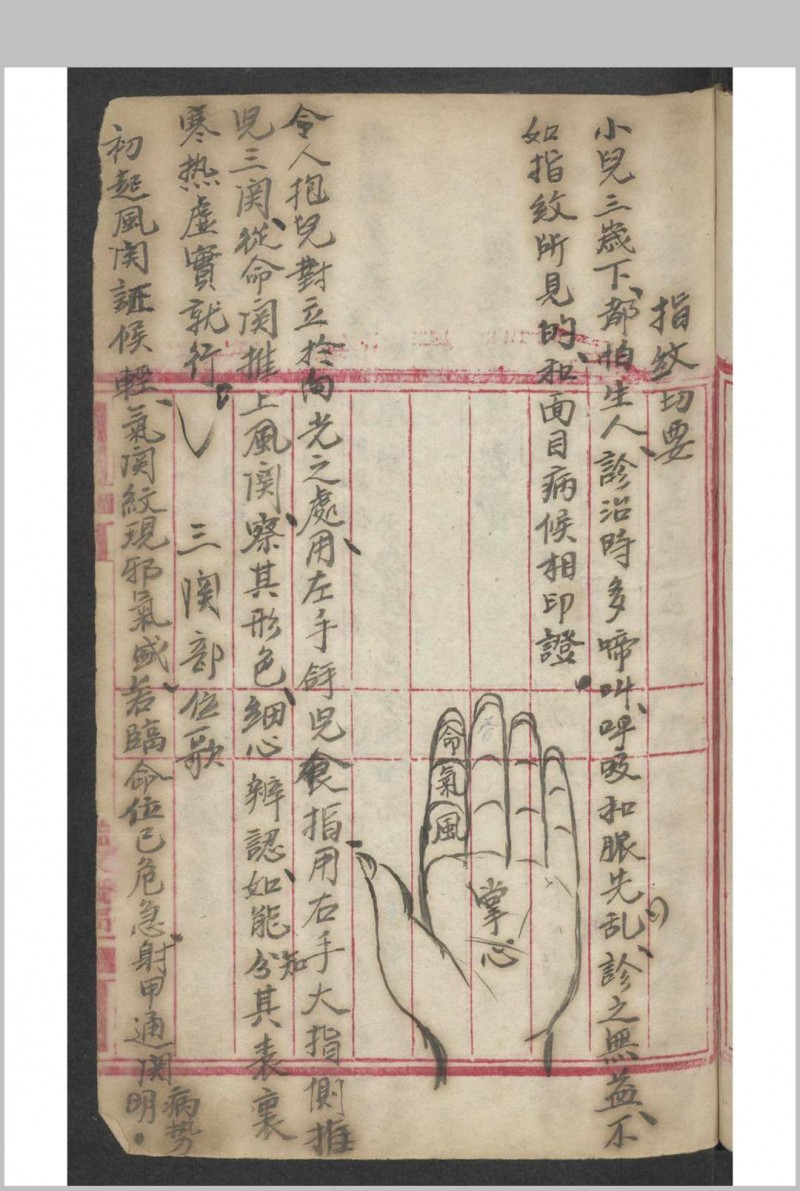 指紋切要
小兒三歲下、都怕生人、診治時多啼叫、呼吸和脈先乱、診之無益、不
如指紋所見的、和面目病候相印證。
命
氣
風
掌心
令人抱兒對立於向光之處、用左手
兒食指用右手大指側推
兒三関、從命関推上風関、察其形色、細心辨認、如能分知其表裏
寒热虛實就行。
三関部位歌
初起風関証候輕、氣関紋現邪氣盛、若臨命位已危急、射甲通関病势明。